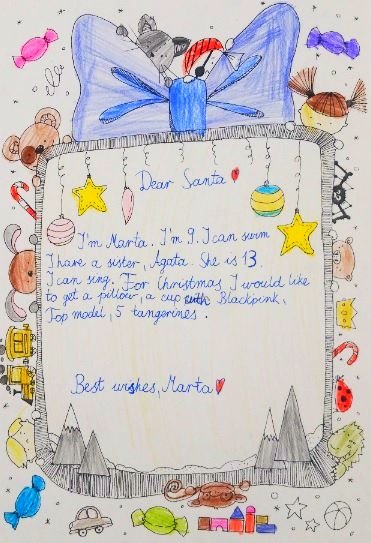 Dear Santa
I'm Marta. I'm 9. I can swim
I have a sister, Agata. She is 13.
I can sing. For Christmas I would like
to get a pillow, a cup with Blackpink,
Top model, 5 tangerines.
Best wishes, Marta